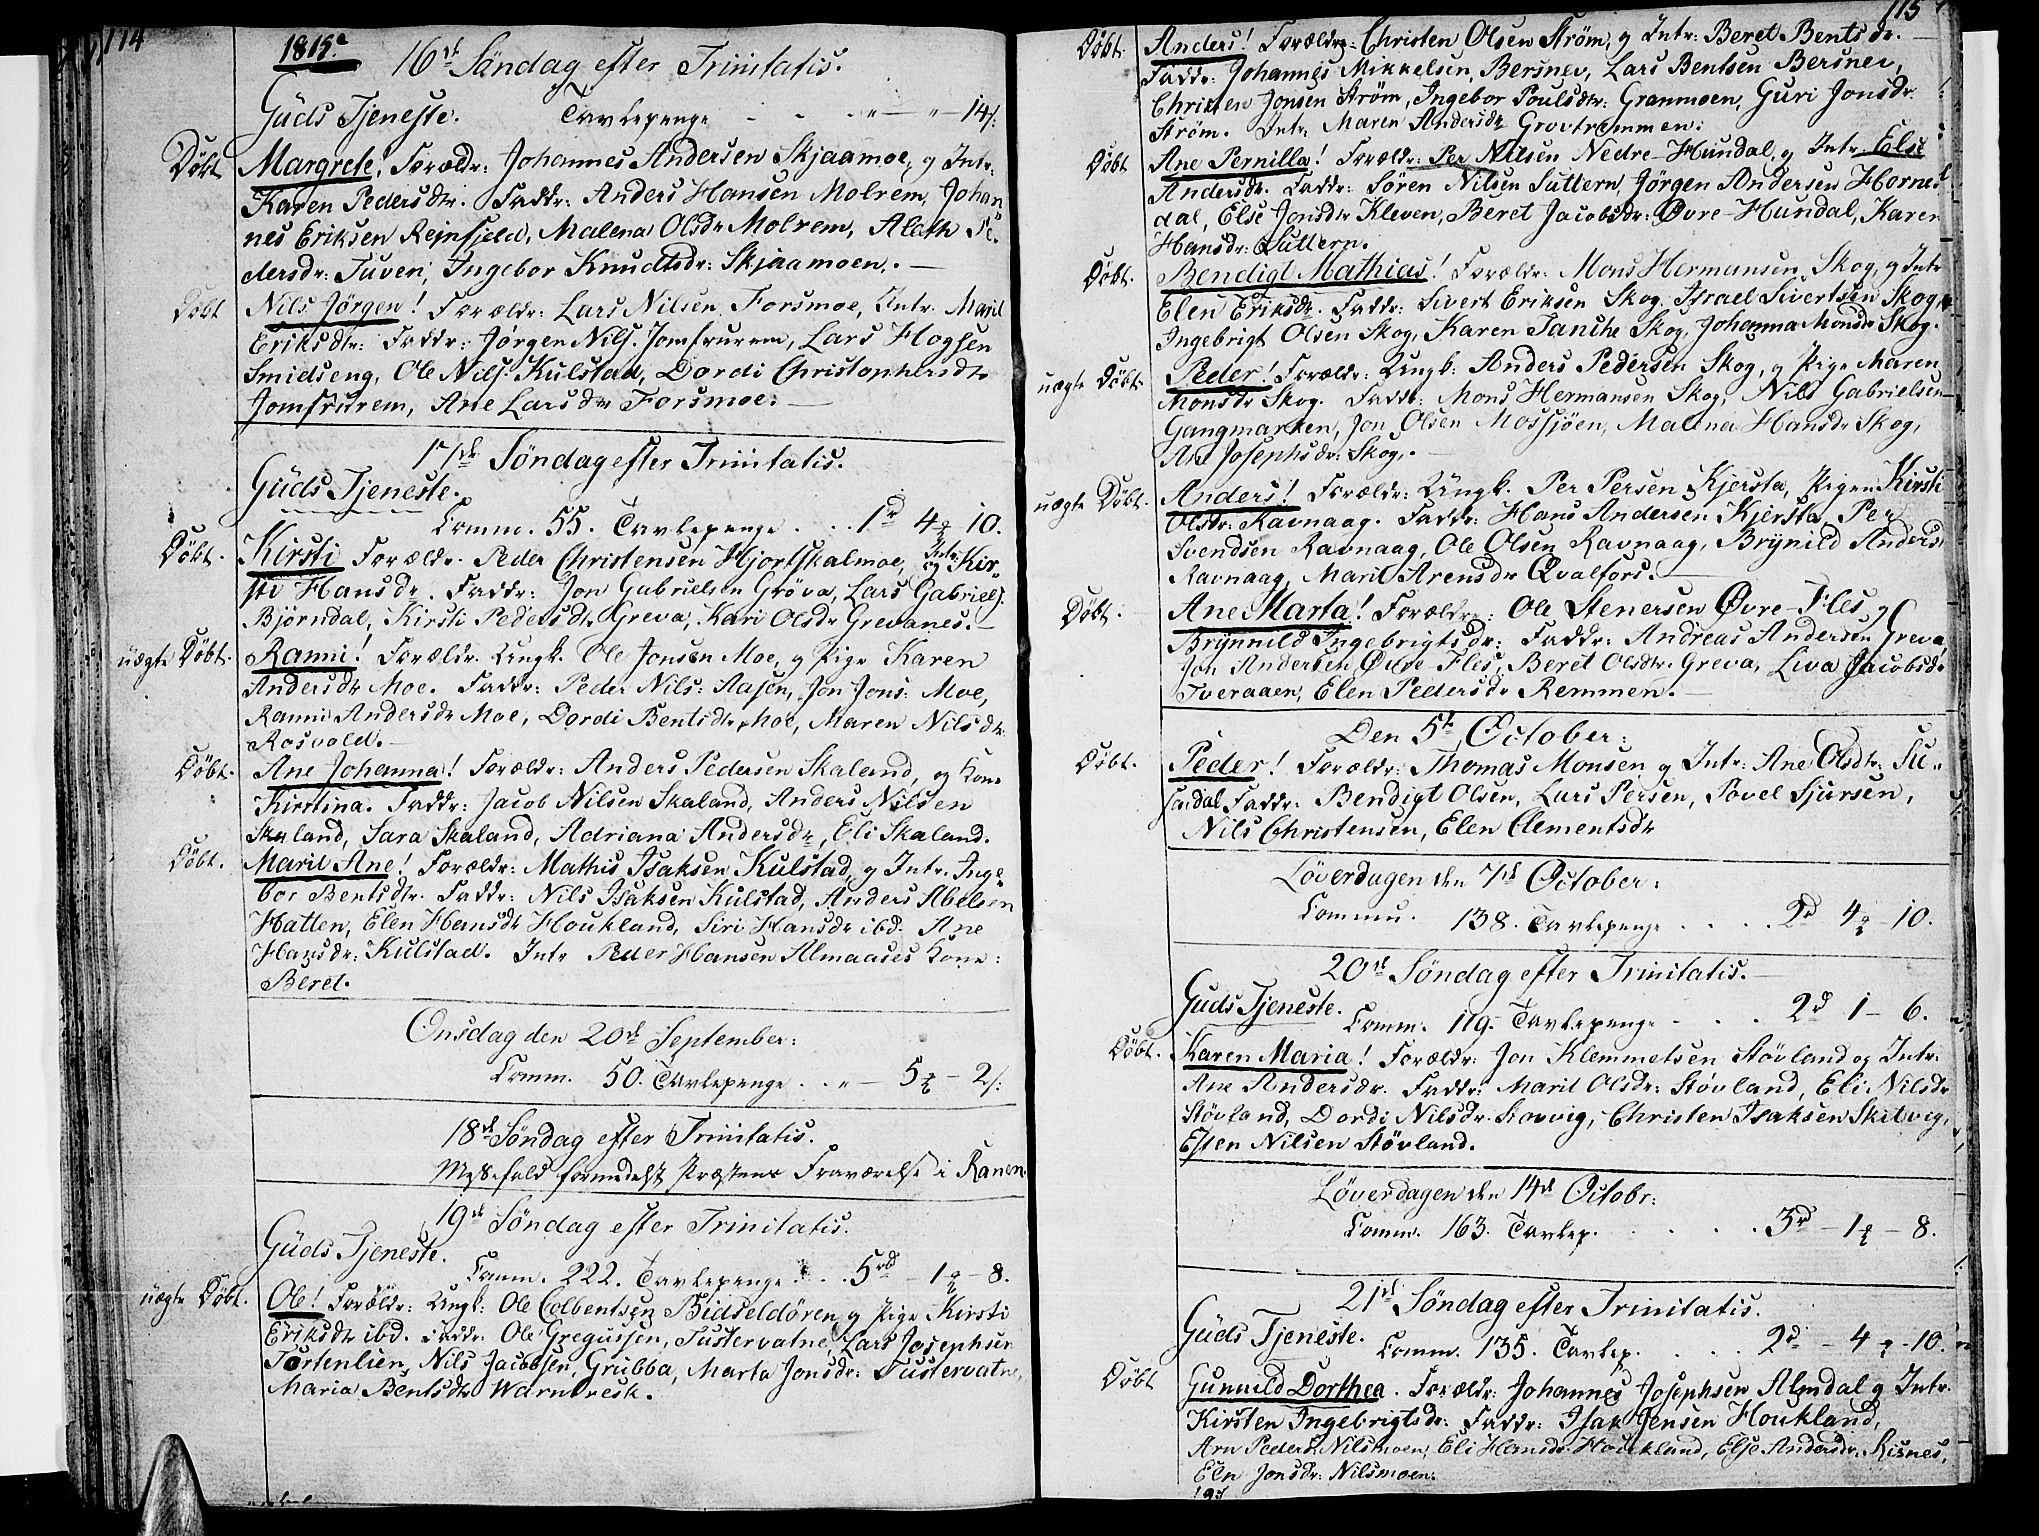 114
1815.
16de Søndag efter Trinitatis.
Guds Tjeneste. Tavlepenge - - - " - " - 14 s:
Døbt Margrete! Forældr: Johannes Andersen Skjaamoe, og Intr:
Karen Pedersdtr. Faddr: Anders Hansen Molrem, Johan
nes Eriksen Rejnfjeld, Malena Olsdr Molrem, Aleth Pe-
dersdr: Tuven, Ingebor Knudtsdr: Skjaamoen. —
Døbt Nils Jørgen! Forældr: Lars Nilsen Forsmoe, Intr. Marit
Eriksdtr: Faddr: Jørgen Nils. Jomfrurem, Lars Flogsen
Smidseng, Ole Nils. Kulstad, Dordi Christophersdtr
Jomfrurem, Ane Larsdtr Forsmoe. —
17de Søndag efter Trinitatis.
Guds Tjeneste.
Comm. 55. Tavlepenge . . . 1d 4 10.
Døbt. Kirsti Forældr. Peder Christensen Hjortskalmoe, og Intr. Kir-
sti Hansdr. Faddr: Jon Gabrielsen Grøva, Lars Gabriels.
Bjørndal, Kirsti Pedersdtr Greva, Kari Olsdr Grevanes. —
uægte Døbt. Ranni! Forældr. Ungk. Ole Jonsen Moe, og Pige Karen
Andersdtr Moe. Faddr: Peder Nils: Aasen, Jon Jons: Moe,
Ranni Andersdr Moe, Dordi Bentsdtr Moe, Maren Nilsdtr
Rosvold. —
Døbt. Ane Johanna! Forældr: Anders Pedersen Skaland, og Kone
Kirstina. Faddr: Jacob Nilsen Skaland, Anders Nilsen
Skaland, Sara Skaland, Adriana Andersdr, Eli Skaland.
Døbt. Marit Ane! Forældr: Mathis Isaksen Kulstad, og Intr. Inge-
bor Bentsdtr. Faddr: Nils Isaksen Kulstad, Anders Abelsen
Hatten, Elen Hansdr Houkland, Siri Hansdr ibd. Ane
Hansdr: Kulstad. Intr Peder Hansen Almaases Kone:
Beret.
Onsdag den 20de September:
Comm. 50. Tavlepenge . . " — 5 — 2 s:
18de Søndag efter Trinitatis.
Messefald formedelst Præstens Fraværelse i Ranen.
19de Søndag efter Trinitatis.
Guds Tjeneste.
Comm. 222. Tavlepenge . . . 5 rd - 1 - 8.
uægte Døbt. Ole! Forældr: Ungk: Ole Colbentsen Bidseldøren, og Pige Kirsti
Eriksdtr ibd. Faddr: Ole Gregussen, Tustervatne, Lars Josephsen
Tortenlien, Nils Jacobsen, Grubba, Marta Jonsdr: Tustervatn,
Maria Bentsdtr Warntresk.
115
Døbt. Anders! Forældre: Christen Olsen Strøm, og Intr: Beret Bentsdr. —
Faddr: Johannes Mikkelsen, Bersnev, Lars Bentsen Bersnev,
Christen Jonsen Strøm, Ingebor Poulsdtr: Granmoen, Guri Jonsdr
Strøm. Intr Maren Andersdr Grovtremmen:
Døbt Ane Pernilla! Forældr: Per Nilsen Nedre-Hundal, og Intr: Else
Andersdr. Faddr: Søren Nilsen Luttern, Jørgen Andersen Hornes
dal, Else Jonsdtr Kleven, Beret Jacobsdr: Øvre-Hundal, Karen
Hansdr: Luttern.
Døbt. Bendigt Mathias! Forældr: Mons Hermansen Skog, og Intr
Elen Eriksdr. Faddr: Sivert Eriksen Skog, Israel Sivertsen Skog,
Ingebrigt Olsen Skog, Karen Tanche Skog, Johanna Monsdr Skog.
uægte Døbt. Peder! Forældr: Ungk: Anders Pedersen Skog, og Pige Maren
Monsdr Skog. Faddr: Mons Hermansen Skog, Nils Gabrielsen
Gangmarken, Jon Olsen Mosjøen, Malena Hansdr Skog,
Ane Josephsdr: Skog. —
uægte Døbt. Anders! Forældr: Ungk. Per Persen Kjersta, Pigen Kirsti
Olsdr: Ravnaag. Faddr: Hans Andersen Kjersta, Per
Svendsen Ravnaag, Ole Olsen Ravnaag, Brynild Anders.
Ravnaag, Marit Arensdr Qvalfors. —
Døbt. Ane Marta! Forældre: Ole Stenersen Øvre-Fles, og
Brynnild Ingebrigtsdr: Faddr: Andreas Andersen Greva,
Jon Andersen Øvre-Fles, Beret Olsdtr. Greva, Liva Jacobsdr
Tveraaen, Elen Pedersdr Remmen. —
Den 5te October:
Døbt. Peder! Forældr: Thomas Monsen og Intr: Ane Olsdtr: Su-
sendal Faddr: Bendigt Olsen, Lars Persen, Povel Sjursen,
Nils Christensen, Elen Clementsdtr
Løverdagen den 7de October:
Commu. 138. Tavlepenge . . . . 2d 4 - 10.
20de Søndag efter Trinitatis. —
Guds Tjeneste.
Comm. 119. Tavlepenge - . . . 2d 1 - 6.
Døbt. Karen Maria! Forældr: Jon Klemmetsen Støvland og Intr:
Ane Andersdr. Faddr: Marit Olsdr: Støvland, Eli Nilsdr
Støvland, Dordi Nilsdr. Kovvig, Christen Isaksen Skilvig,
Esten Nilsen Støvland.
Løverdagen den 14de Octobr:
Comm. 163. Tavlep. . . . . 3d - 1 - 8.
21de Søndag efter Trinitatis.
Guds Tjeneste.
Comm. 135. Tavlep. . . . . 2d - 4 - 10.
Døbt Gunnild Dorthea. Forældr: Johannes Josephsen Almdal og Intr.
Kirsten Ingebrigtsdr: Faddr: Isak Jensen Houkland,
Arn Peders. Nilsmoen, Eli Hansdr. Houkland, Else Andersdr. Risnes,
Elen Jonsdr: Nilsmoen.